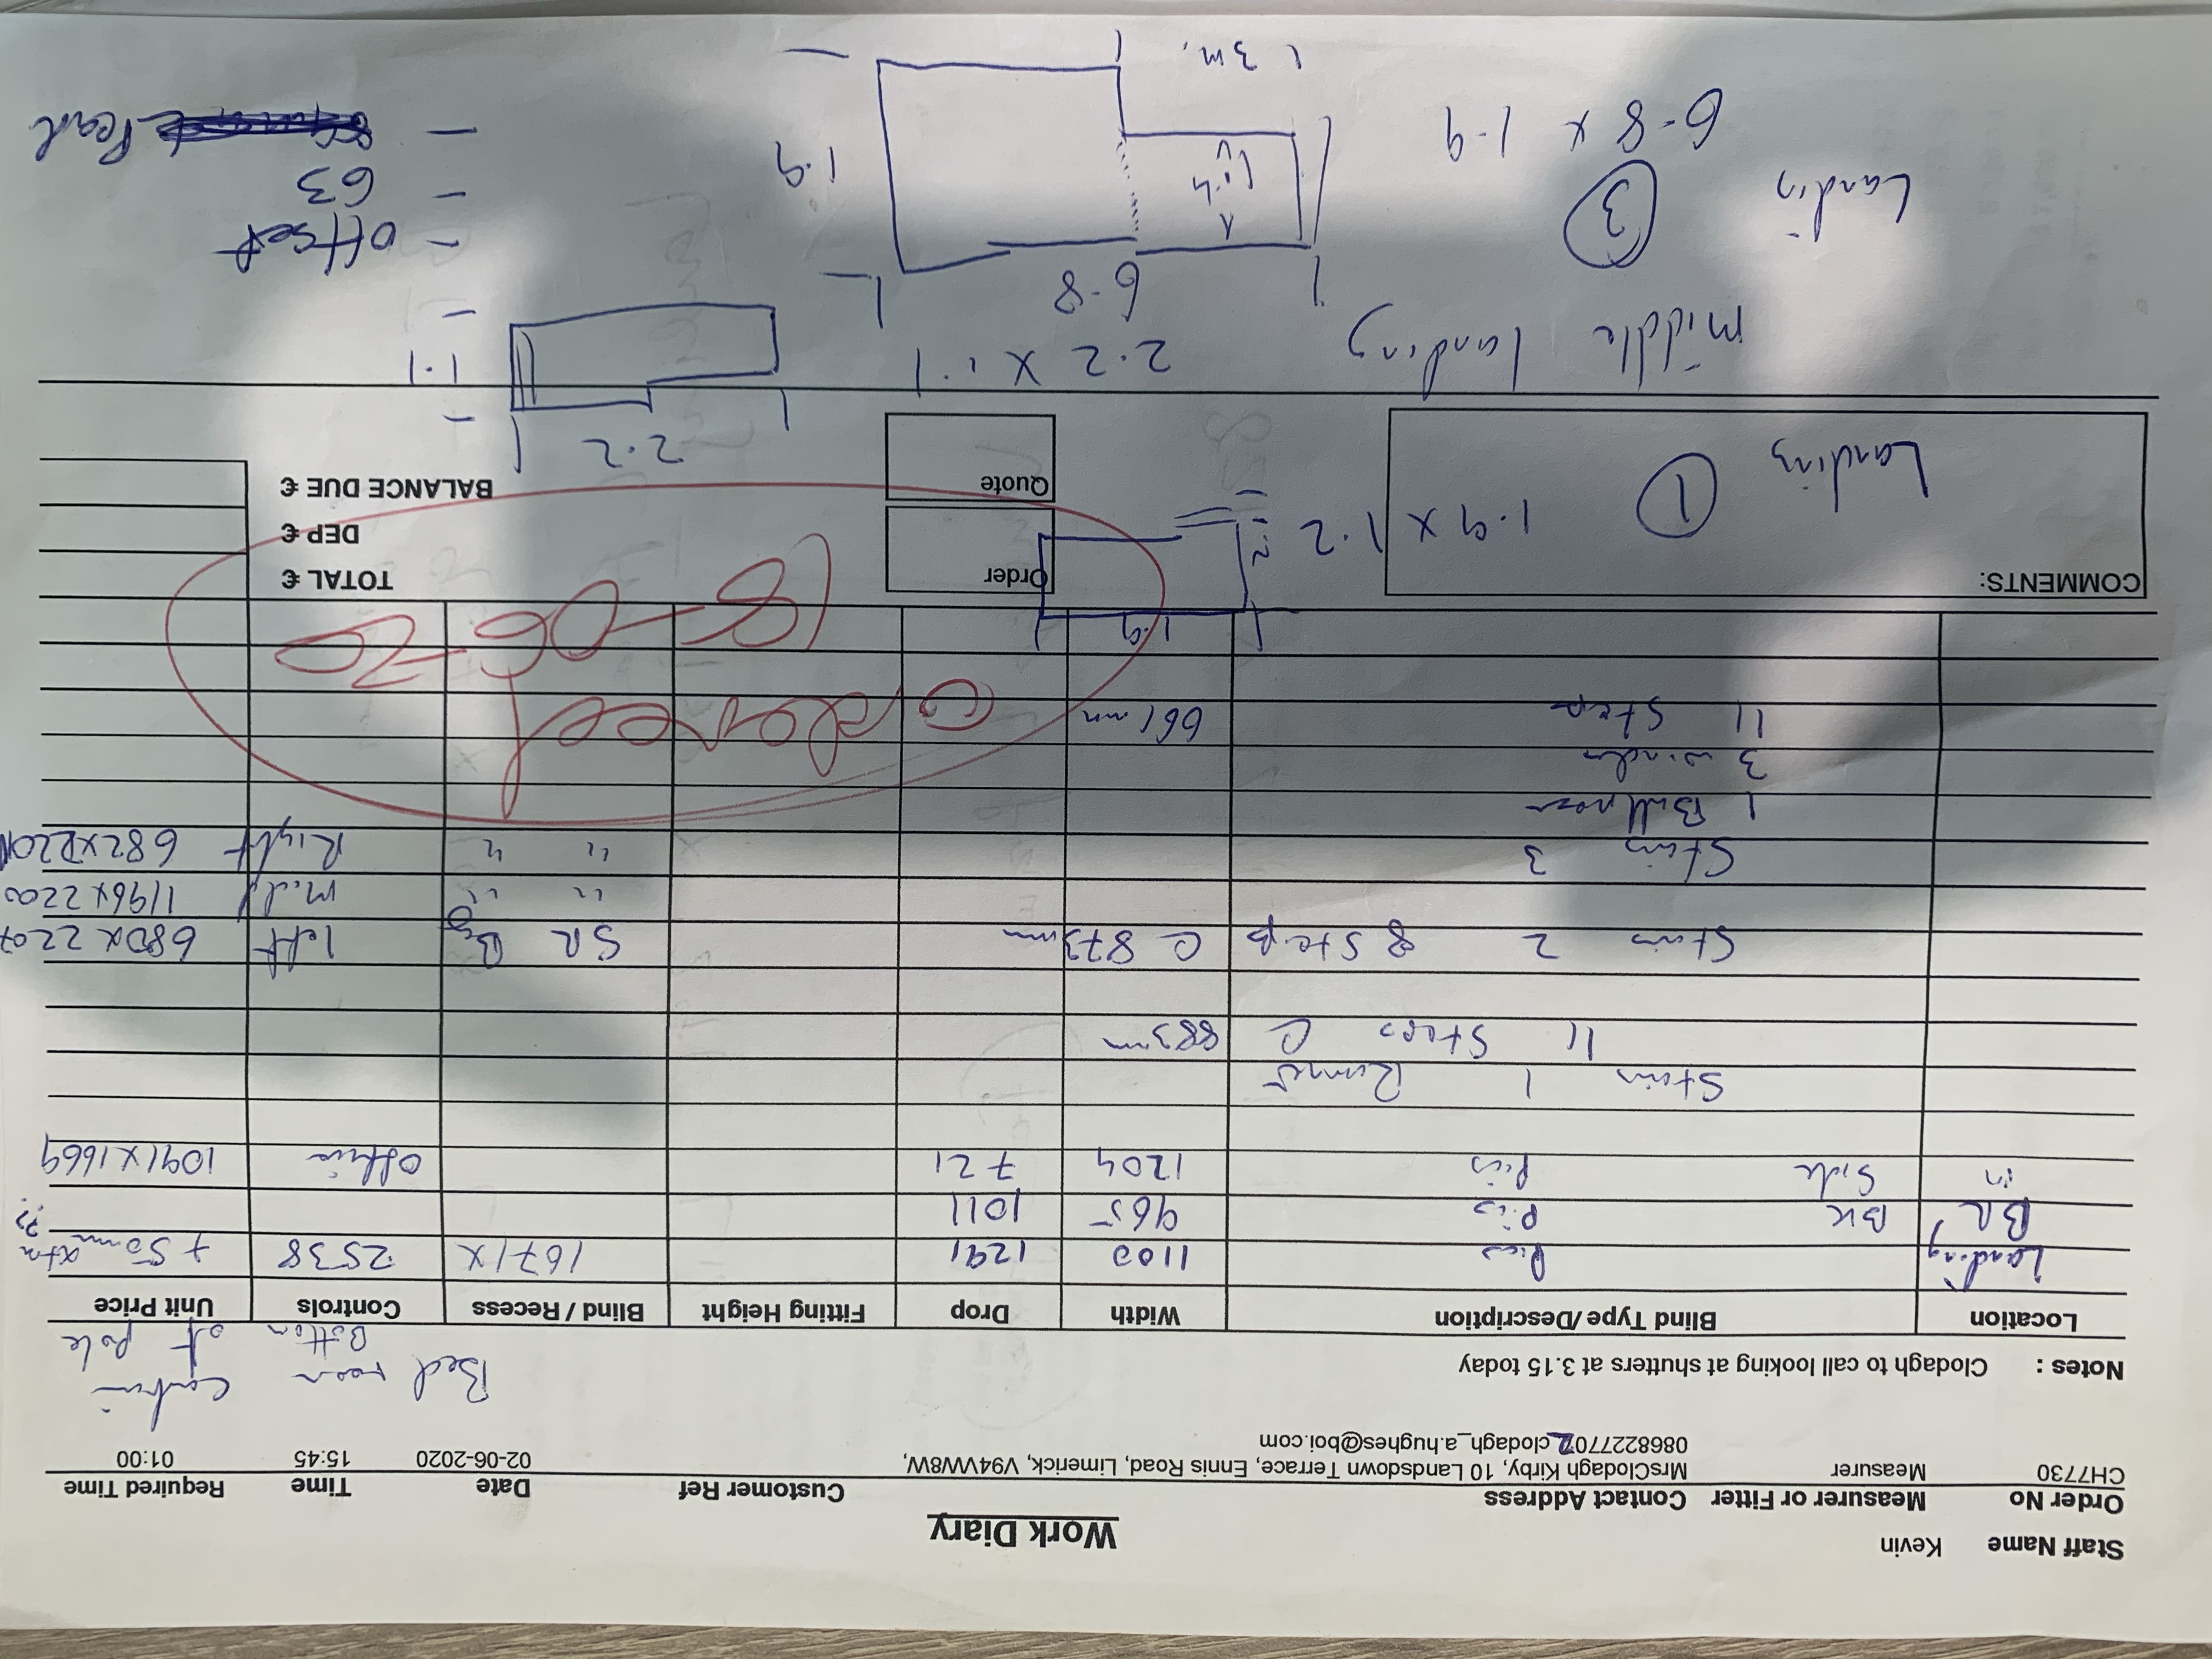 Work Diary
Staff Name Kevin
Order No Measurer or Fitter Contact Address Customer Ref Date Time Required Time
CH7730 Measurer MrsClodagh Kirby, 10 Landsdown Terrace, Ennis Road, Limerick, V94VW8W, 02-06-2020 15:45 01:00
0868227702 clodagh_a.hughes@boi.com
Notes : Clodagh to call looking at shutters at 3.15 today
Bed room Confirm
Bottom of pole
Location Blind Type/Description Width Drop Fitting Height Blind / Recess Controls Unit Price
Landing Pics 1100 1291 1671 x 2538 + 50mm
BR BK Pics 965 1011
Side Pics 1204 721 1091 x 1669
Stairs 1 Runner
11 Steps C 883mm
Stairs 2 8 Steps C 873mm SR left 680 x 2207
" " Mid 1196 x 2200
Stairs 3 " " Right
1 Bullnose
3 winder
11 Steps 661mm
Closed
18-06-20
1.9
COMMENTS: Order TOTAL €
DEP €
Landing 1 1.9 x 1.2 Quote BALANCE DUE €
2.2
1.1
Middle landing 2.2 x 1.1
6.8
Landing 3 - Offset
- 63
6.8 x 1.9 1.9 - Pearl
3m